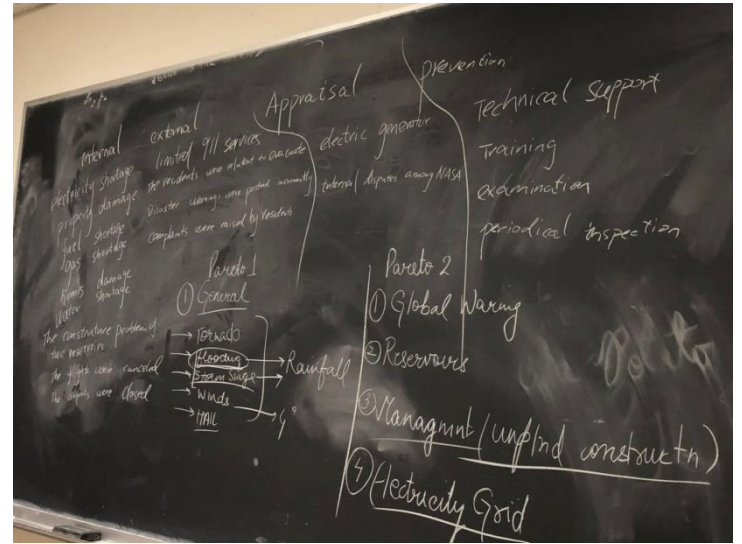 internal
electricity shortage
property damage
fuel shortage
gas shortage
homes damage
Water shortage
The construture problem of
two reservoirs
the flights were canceled
the airports were closed
external
limited 911 services
the residents were reluctant to evacuate
Disaster warnings were posted incorrectly
Complaints were raised by residents
Appraisal
electric generator
internal disputes among NASA
prevention
Technical support
Training
examination
periodical inspection
Pareto 1
① General
→ Tornado
→ Flooding → Rainfall
→ Storm Surge →
→ Winds
→ HAIL
Pareto 2
① Global Warmg
② Reservours
③ Managmnt (unplnd constructn)
④ Electricity Grid